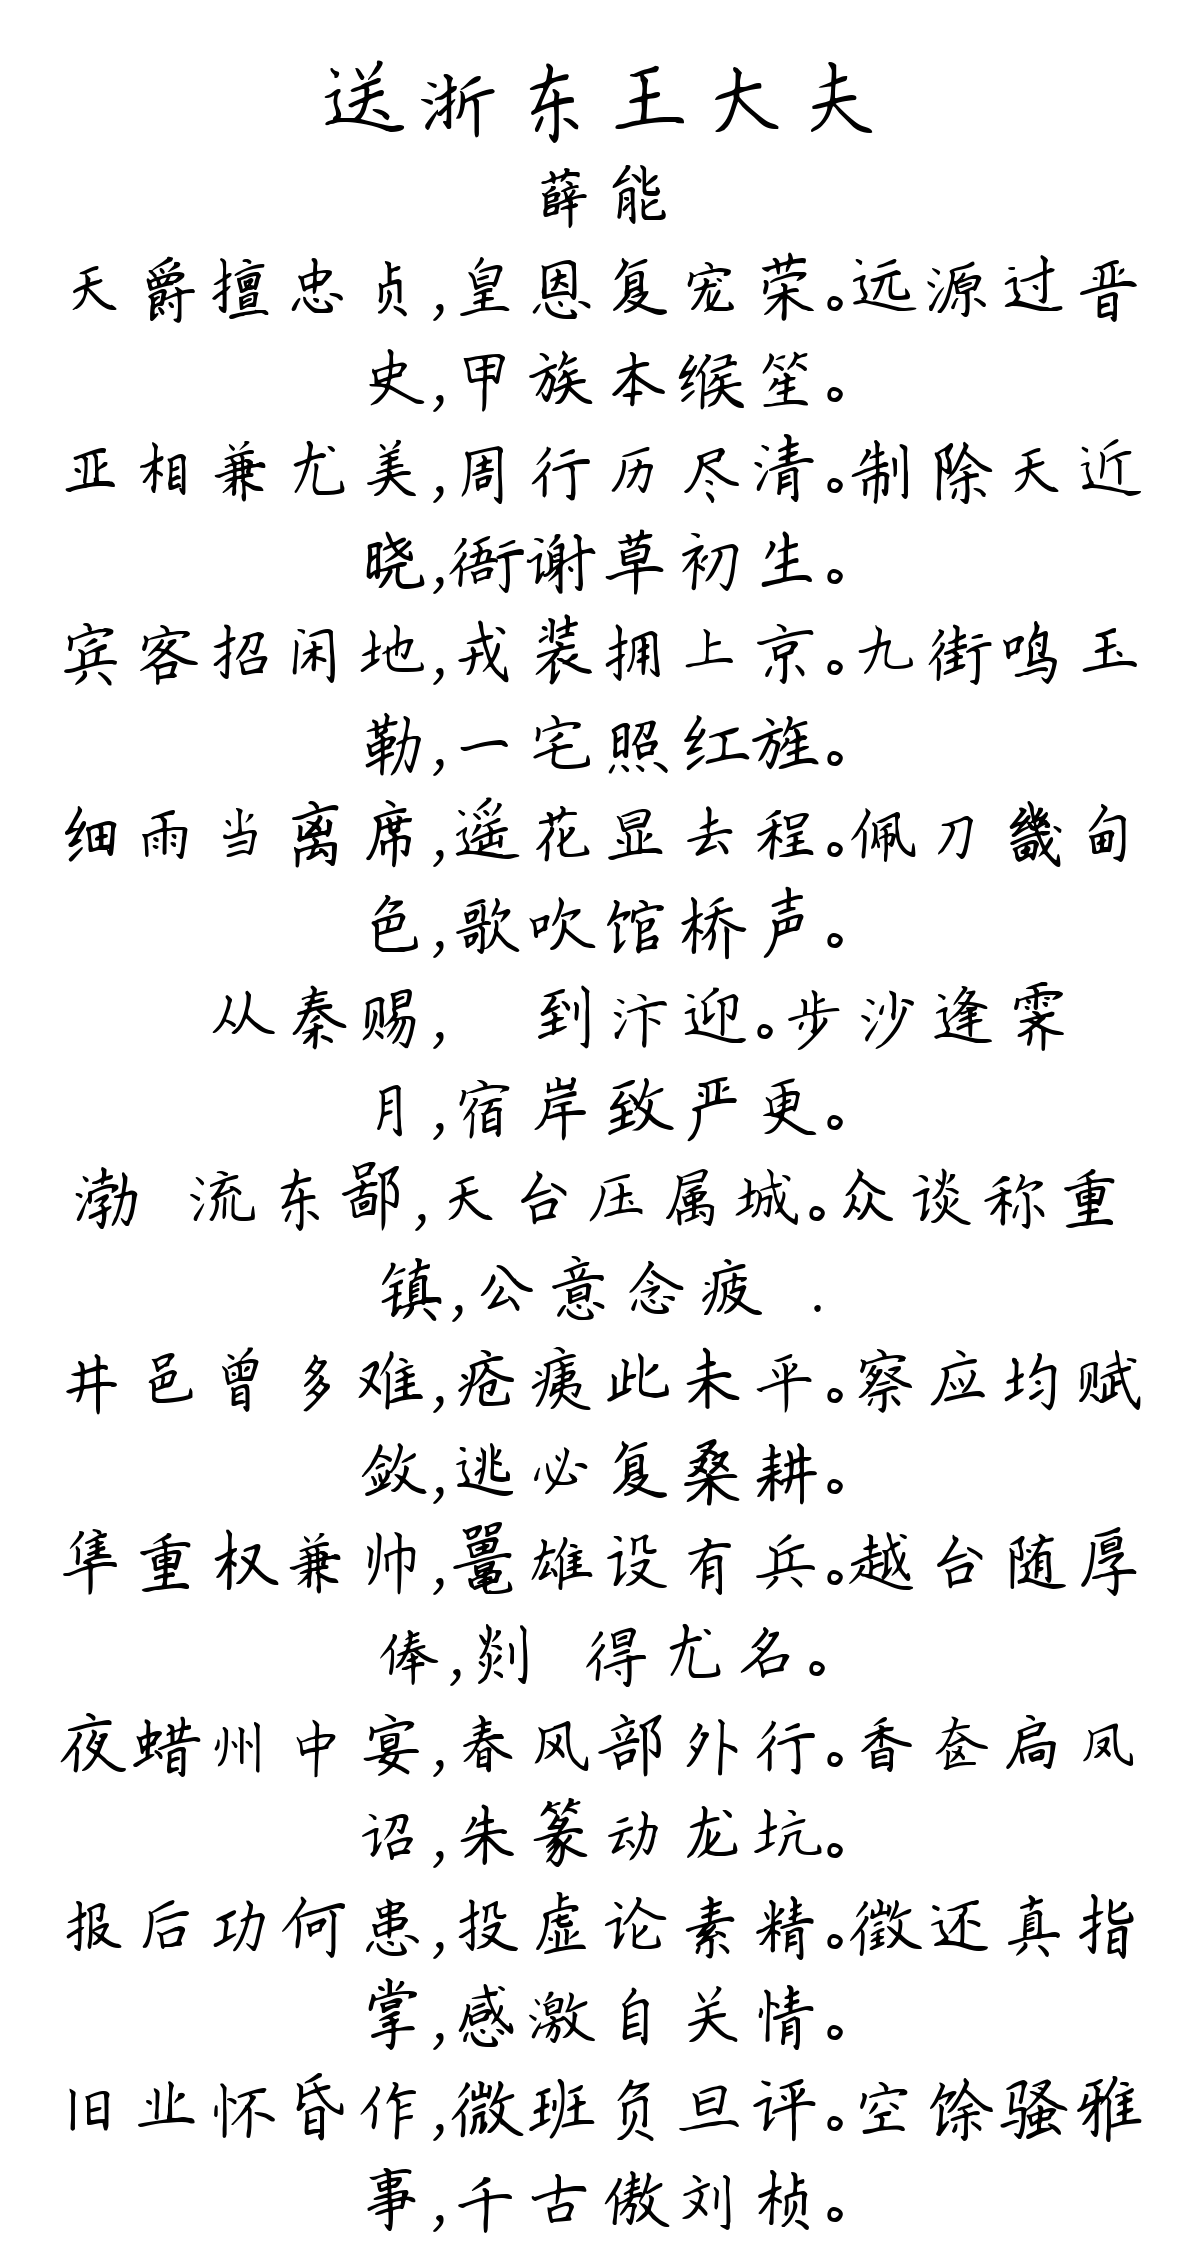 送浙东王大夫
薛能
天爵擅忠贞,皇恩复宠荣。远源过晋
史,甲族本缑笙。
亚相兼尤美,周行历尽清。制除天近
晓,衙谢草初生。
宾客招闲地,戎装拥上京。九街鸣玉
勒,一宅照红旌。
细雨当离席,遥花显去程。佩刀畿甸
色,歌吹馆桥声。
从秦赐, 到汴迎。步沙逢霁
月,宿岸致严更。
渤 流东鄙,天台压属城。众谈称重
镇,公意念疲 .
井邑曾多难,疮痍此未平。察应均赋
敛,逃必复桑耕。
隼重权兼帅,鼍雄设有兵。越台随厚
俸,剡 得尤名。
夜蜡州中宴,春风部外行。香奁扃凤
诏,朱篆动龙坑。
报后功何患,投虚论素精。徵还真指
掌,感激自关情。
旧业怀昏作,微班负旦评。空馀骚雅
事,千古傲刘桢。